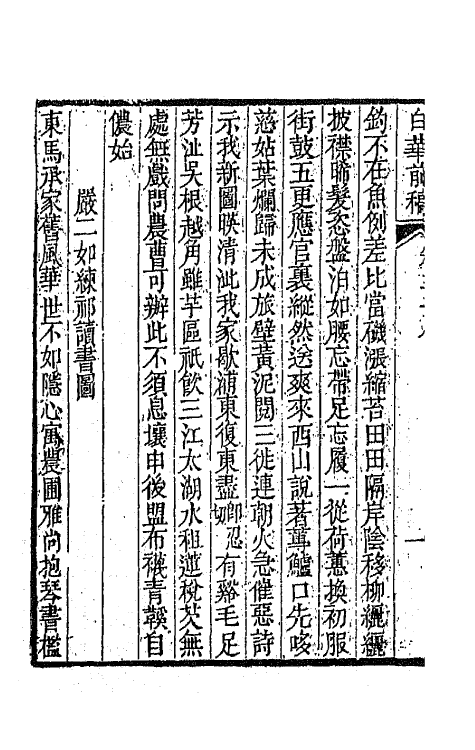 白華前稿
鈎不在魚倒差比當磯漲縮苔田田隔岸陰移柳纚纚
披襟晞髮恣盤泊如腰忘帶足忘履一從荷蕙換初服
街鼓五更應官裏縱然送爽來西山說著蓴鱸口先哆
慈姑葉爛歸未成旅壁黃泥閱三徙連朝火急催惡詩
示我新圖暎清泚我家歇浦東復東盡如卿忍有谿毛足
芳沚吳根越角雖芋區祇飲三江太湖水租蓮稅芡無
處無戲問農曹可辦此不須息壤申後盟布襪青鞵自
儂始
嚴二如練祁讀書圖
東馬承家舊風華世不如隱心寓農圃雅尚抱琴書檻